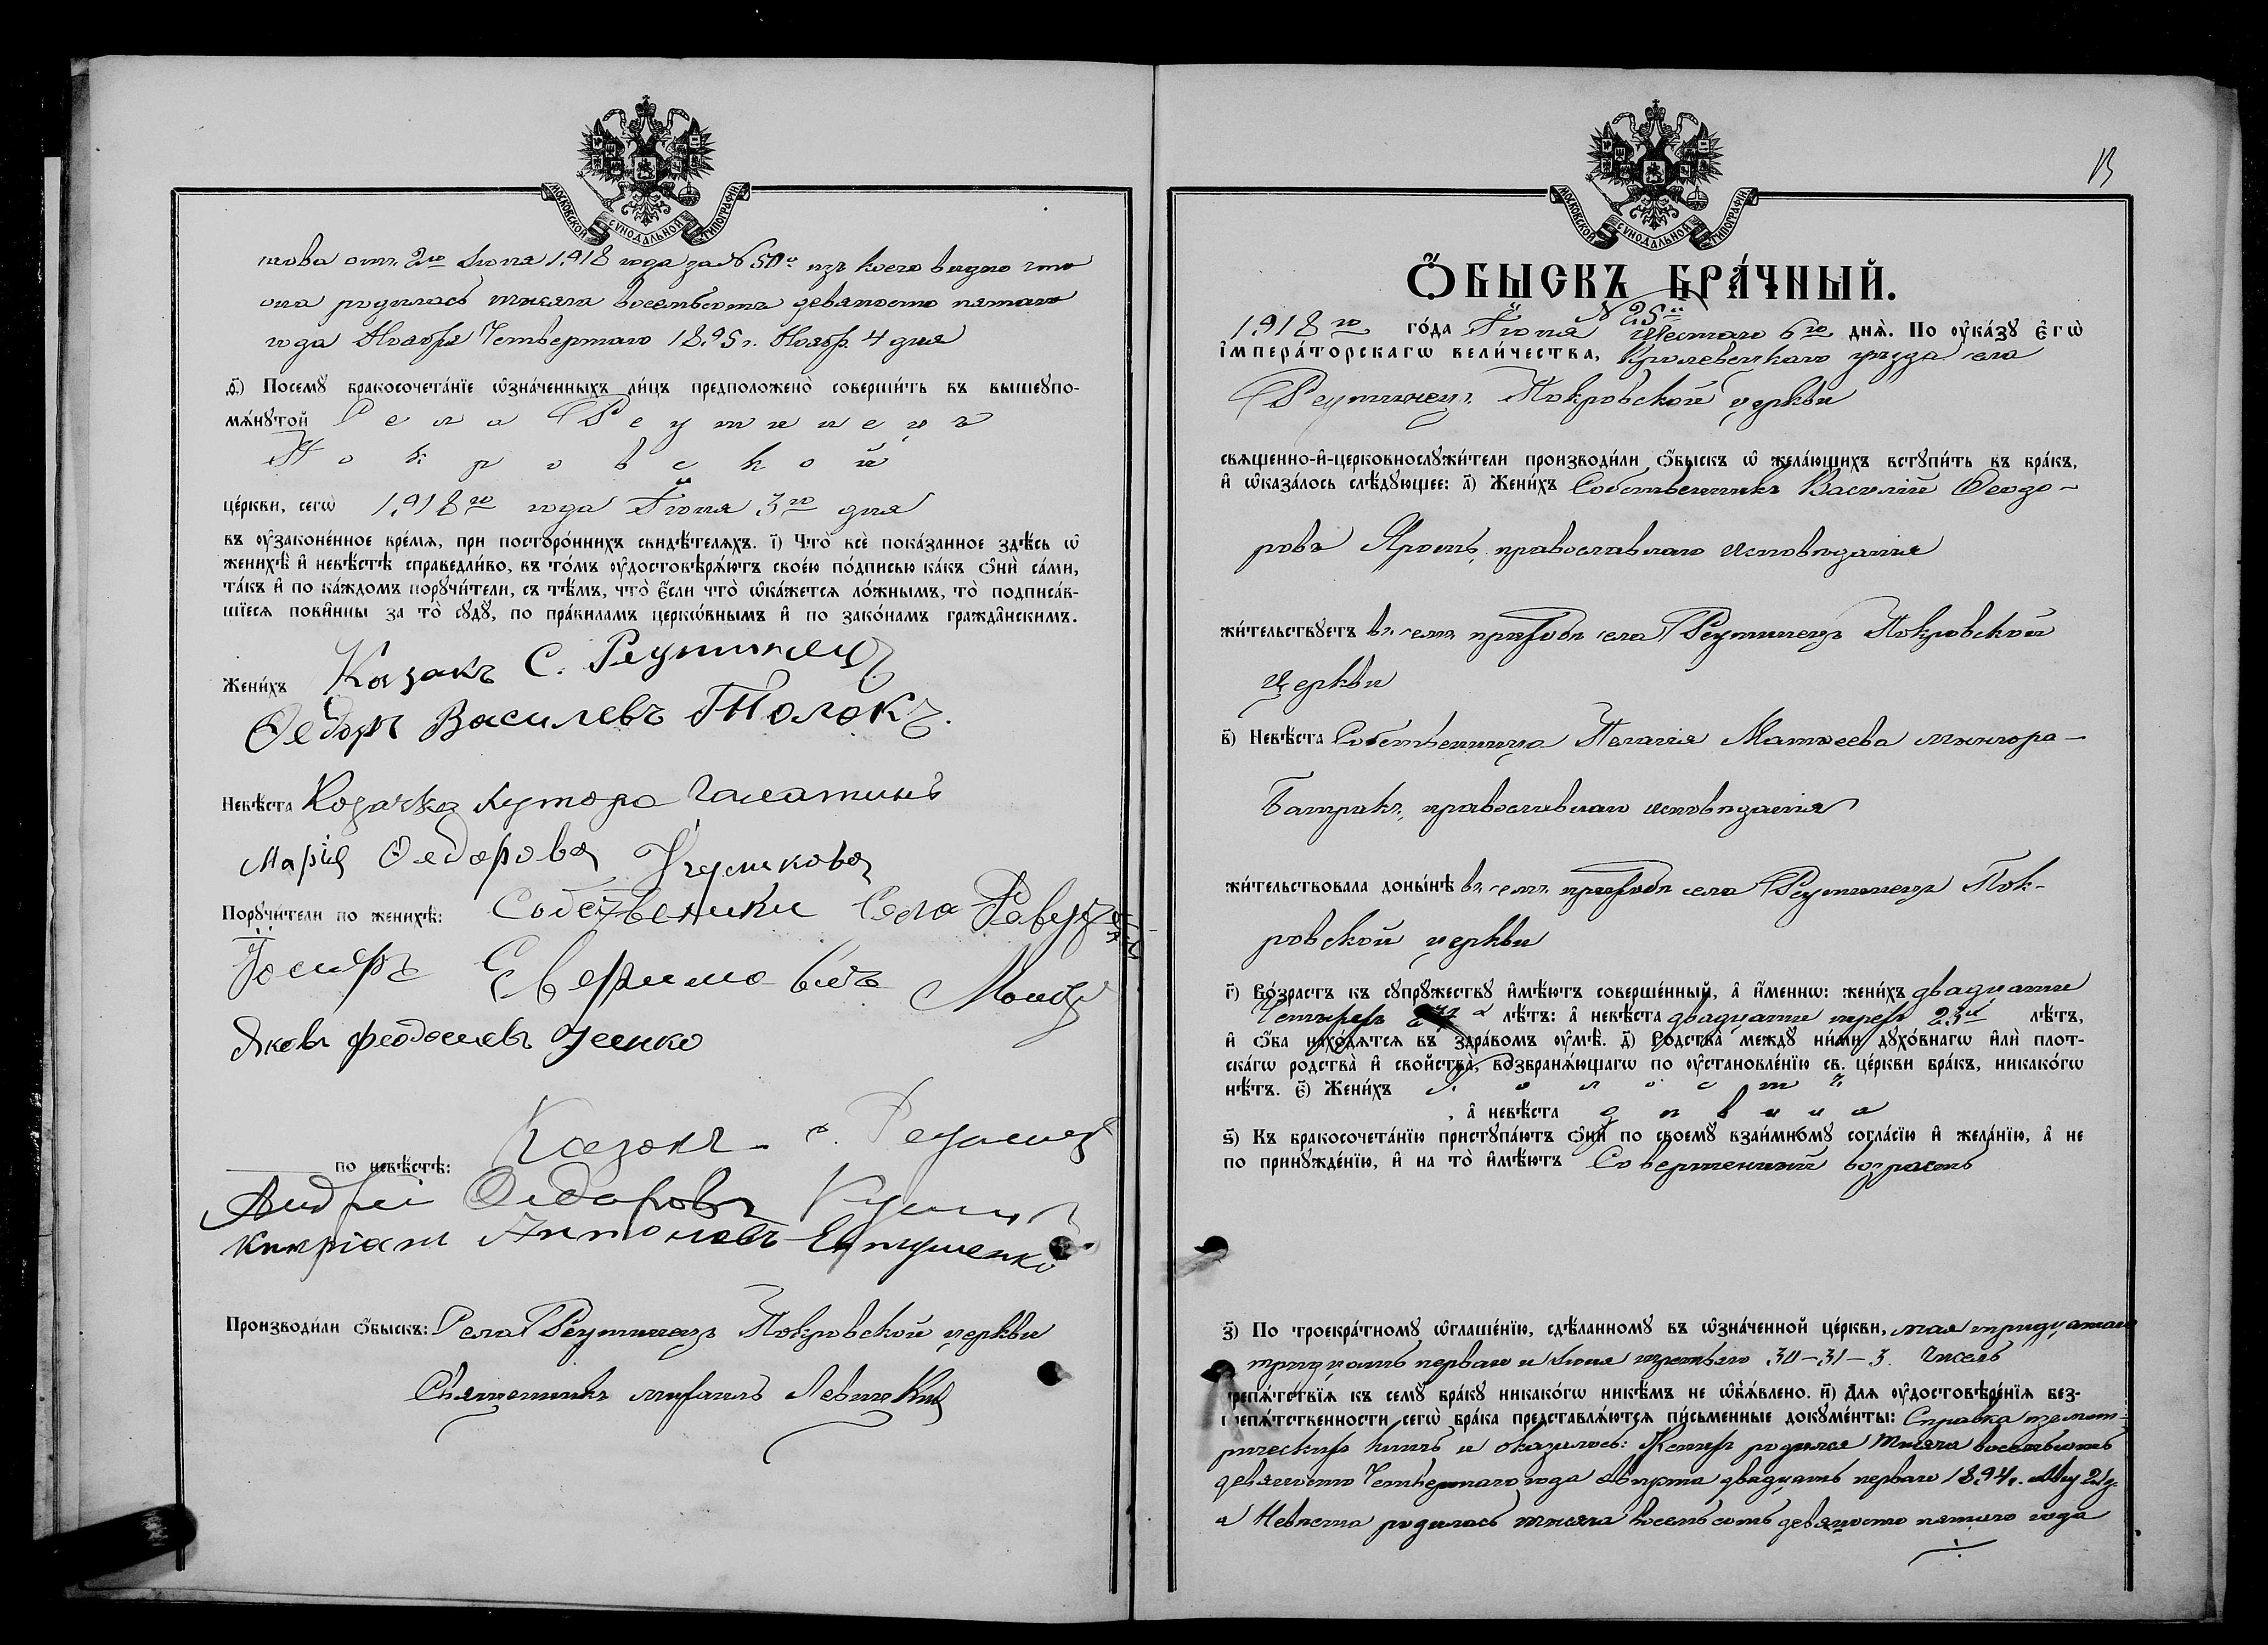 МОСКОВСКОЙ СѴНОДАЛЬНОЙ ТИПОГРАФІИ
нова отъ 2го Іюня 1918 года за № 50м изъ коего видно что
она родилась тысяча восемьсотъ девяносто пятаго
года Ноября Четвертаго 1895 г. Нояб. 4 дня
ѳ҃) Посемꙋ̀ бракосочета́нїе ѡ҆зна́ченныхъ ли́цъ предположено̀ соверши́ть въ вышеꙋпо-
мѧ́нꙋтой Села Реутинецъ
Покровской
це́ркви, сегѡ̀ 1918го года Іюня 3го дня
въ ᲂу҆зако́ненное вре́мѧ, при посторо́ннихъ свидѣ́телѧхъ. і҃) Что̀ всѐ пока́занное здѣ́сь ѡ҆
женихѣ̀ и҆ невѣ́стѣ справедли́во, въ то́мъ ᲂу҆достовѣрѧ́ютъ свое́ю по́дписью ка́къ ѻ҆нѝ са́ми,
та́къ и҆ по ка́ждомъ порꙋчи́тели, съ тѣ́мъ, что̀ є҆́сли что̀ ѡ҆ка́жетсѧ ло́жнымъ, то̀ подписа́в-
шїесѧ пови́нны за то̀ сꙋдꙋ̀, по пра́виламъ церко́внымъ и҆ по зако́намъ гражда́нскимъ.
Жени́хъ Козакъ С. Реутинец
Ѳедоръ Василевъ Толокъ.
Невѣ́ста Козачка Хутора
Марія Ѳедорова Кузмикова
Порꙋчи́тели по женихѣ̀: Собственики Села
Іосифъ
Яковъ Феодосиевъ
по невѣ́стѣ: Козакъ с.
Андрей Ѳедоровъ
Кипріанъ Антоновъ
Производи́ли ѻ҆́быскъ: Села Реутинецъ Покровской церкви
Священникъ Михаилъ Левицкій
МОСКОВСКОЙ СѴНОДАЛЬНОЙ ТИПОГРАФІИ
13
Ѻ҆́БЫСКЪ БРА́ЧНЫЙ.
№ 25й
1918го го́да Іюня Шестаго 6го днѧ̀. По ᲂу҆ка́зꙋ є҆гѡ̀
і҆мпера́торскагѡ вели́чества, Кролевецкаго уѣзда села
Реутинецъ Покровской церкви
свѧще́нно-и҆-церковнослꙋжи́тели производи́ли ѻ҆́быскъ ѡ҆ жела́ющихъ встꙋпи́ть въ бра́къ,
и҆ ѡ҆каза́лось слѣ́дꙋющее: а҃) Жени́хъ Собственникъ Василій Ѳеодо-
ровъ православнаго исповѣданія
жи́тельствꙋетъ въ семъ приходѣ села Реутинецъ Покровской
Церкви
в҃) Невѣ́ста Собственница Пелагія Матѳеева
Батракъ, православнаго исповѣданія
жи́тельствовала доны́нѣ въ семъ приходѣ села Реутинецъ Пок-
ровской церкви
г҃) Во́зрастъ къ сꙋпрꙋ́жествꙋ и҆мѣ́ютъ соверше́нный, а҆ и҆́меннѡ: жени́хъ двадцати
Четырехъ лѣ́тъ: а҆ невѣ́ста двадцати трехъ 23й лѣ́тъ,
и҆ ѻ҆́ба нахо́дѧтсѧ въ здра́вомъ ᲂу҆мѣ̀. д҃) Родства̀ междꙋ ни́ми дꙋхо́внагѡ и҆лѝ плот-
ска́гѡ родства̀ и҆ свойства̀, возбранѧ́ющагѡ по ᲂу҆становле́нїю св. це́ркви бра́къ, никако́гѡ
нѣ́тъ. є҃) Жени́хъ холостъ
, а҆ невѣ́ста дѣвица
ѕ҃) Къ бракосочета́нїю пристꙋпа́ютъ ѻ҆нѝ по своемꙋ̀ взаи́мномꙋ согла́сїю и҆ жела́нїю, а҆ не
по принꙋжде́нїю, и҆ на то̀ и҆мѣ́ютъ Совершенный возрастъ
з҃) По троекра́тномꙋ ѡ҆глаше́нїю, сдѣ́ланномꙋ въ ѡ҆зна́ченной це́ркви, мая тридцатаго
тридцать перваго и Іюня третьяго 30-31-3. Чиселъ
препѧ́тствїѧ къ семꙋ̀ бра́кꙋ никако́гѡ никѣ́мъ не ѡ҆бъѧ́влено. и҃) Длѧ ᲂу҆достовѣре́нїѧ без-
препѧ́тственности сегѡ̀ бра́ка представлѧ́ютсѧ пи́сьменные докꙋме́нты: Справка
рическихъ книгъ и оказалось: Женихъ родился тысяча восемьсотъ
девяносто Четвертаго года Августа двадцать перваго 1894 г. Авг 21 д.
а Невѣста родилась тысяча восемьсотъ девяносто пятаго года